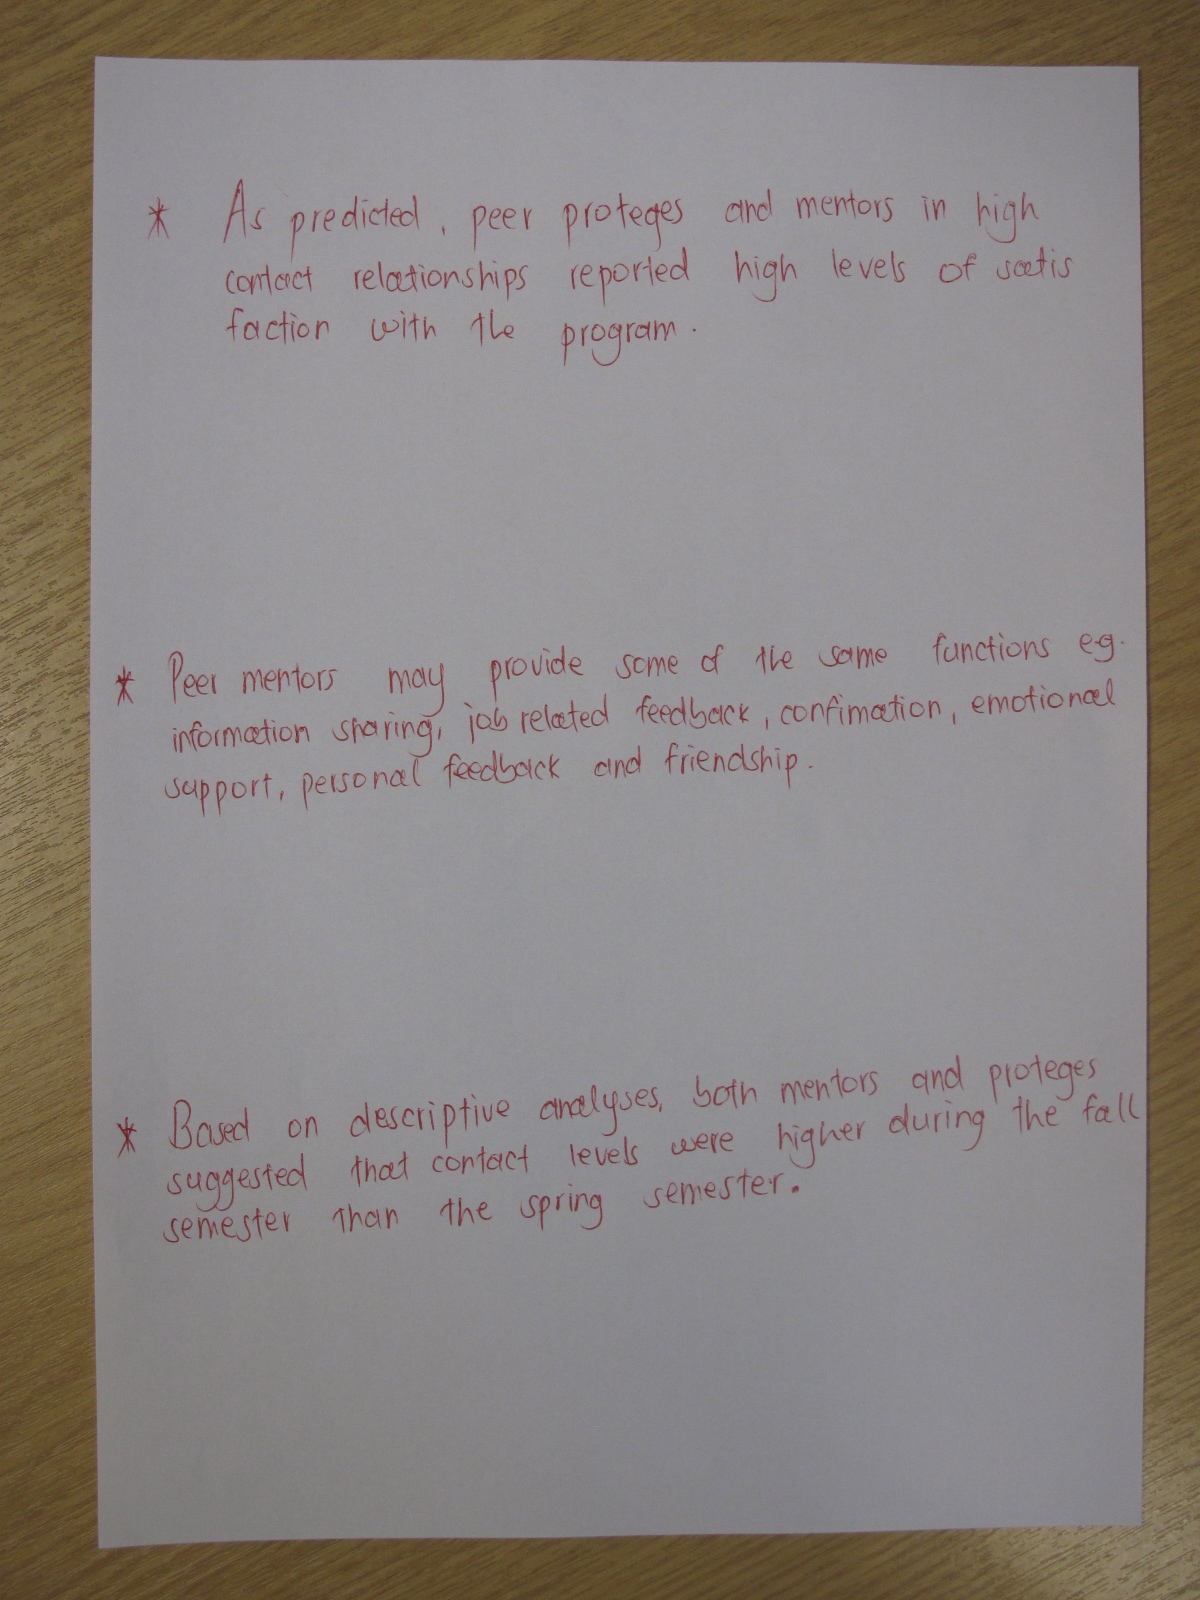 * As predicted, peer proteges and mentors in high
contact relationships reported high levels of satis
faction with the program.
* Peer mentors may provide some of the same functions eg.
information sharing, job related feedback, confimation, emotional
support, personal feedback and friendship.
* Based on descriptive analyses, both mentors and proteges
suggested that contact levels were higher during the fall
semester than the spring semester.